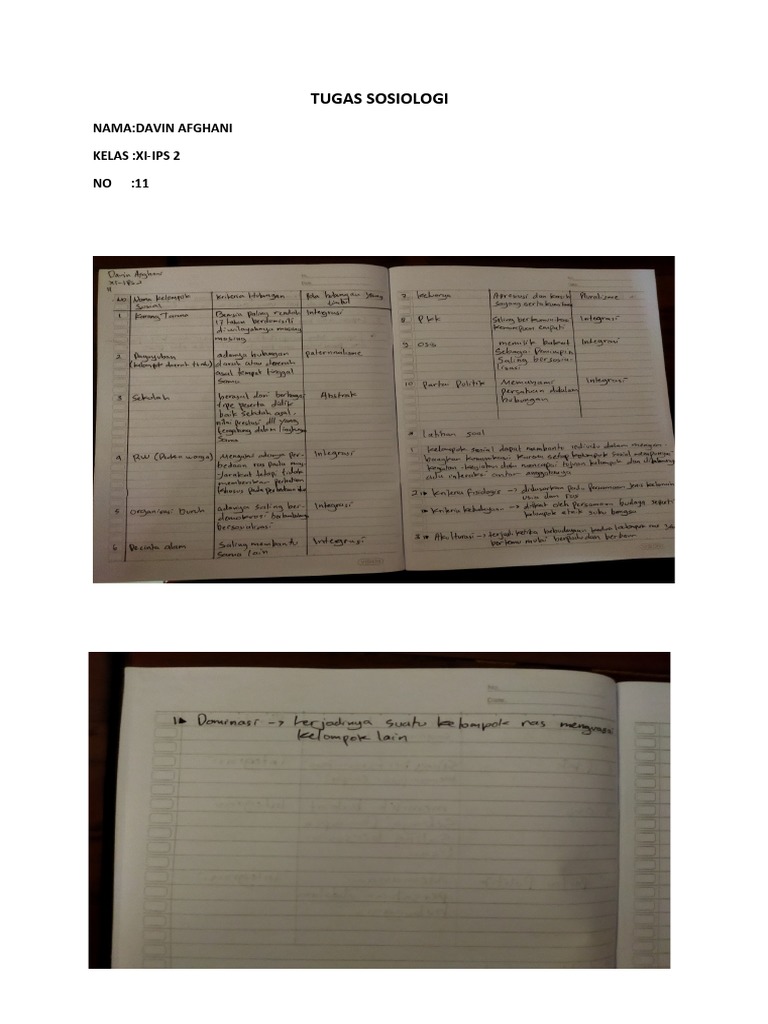 TUGAS SOSIOLOGI
NAMA:DAVIN AFGHANI
KELAS :XI-IPS 2
NO :11
Davin Afghani
XI-IPS 2
11
No
Nama kelompok sosial
kriteria Hubungan
Pola hubungan yang timbul
1
Karang Taruna
Berusia paling rendah
17 tahun berdomisili
di wilayahnya masing
masing
Integrasi
2
Paguyuban
adanya hubungan
darah atau daerah
asal tempat tinggal
sama
paternalisme
3
Sekolah
berasal dari berbagai
tipe peserta didik
baik sekolah asal,
nilai prestasi, dll yang
lingkungan
sama
Abstrak
4
RW (Rukun warga)
Mengakui adanya per-
bedaan ras pada masy-
arakat tetapi tidak
memberikan perhatian
Integrasi
5
Organisasi Dunia
adanya saling ber-
bersosialisasi
Integrasi
6
Pecinta alam
Saling membantu
sama lain
Integrasi
7
keluarga
Apresiasi dan kasih
sayang
Pluralisme
8
Pkk
Saling berkomunikasi
kemampuan empati
Integrasi
9
OSIS
memilih bakat
Sebagai Pemimpin
Saling bersosia-
lisasi
Integrasi
10
Partai Politik
Memahami
persatuan didalam
hubungan
Integrasi
* Latihan soal
1 kelompok sosial dapat membantu individu dalam mengem-
bangkan karena setiap kelompok sosial mempunyai
kegiatan-kegiatan dalam mencapai tujuan kelompok dan
antar anggotanya
2 Kriteria Fisiologis -> didasarkan pada Persamaan jenis kelamin
usia dan ras
Kriteria kebudayaan -> dilihat oleh persamaan budaya seperti
kelompok etnik suku bangsa
3 Akulturasi -> terjadi ketika kebudayaan kelompok ras
bertemu mulai berpadu dan
Dominasi -> terjadinya suatu kelompok ras menguasai
kelompok lain